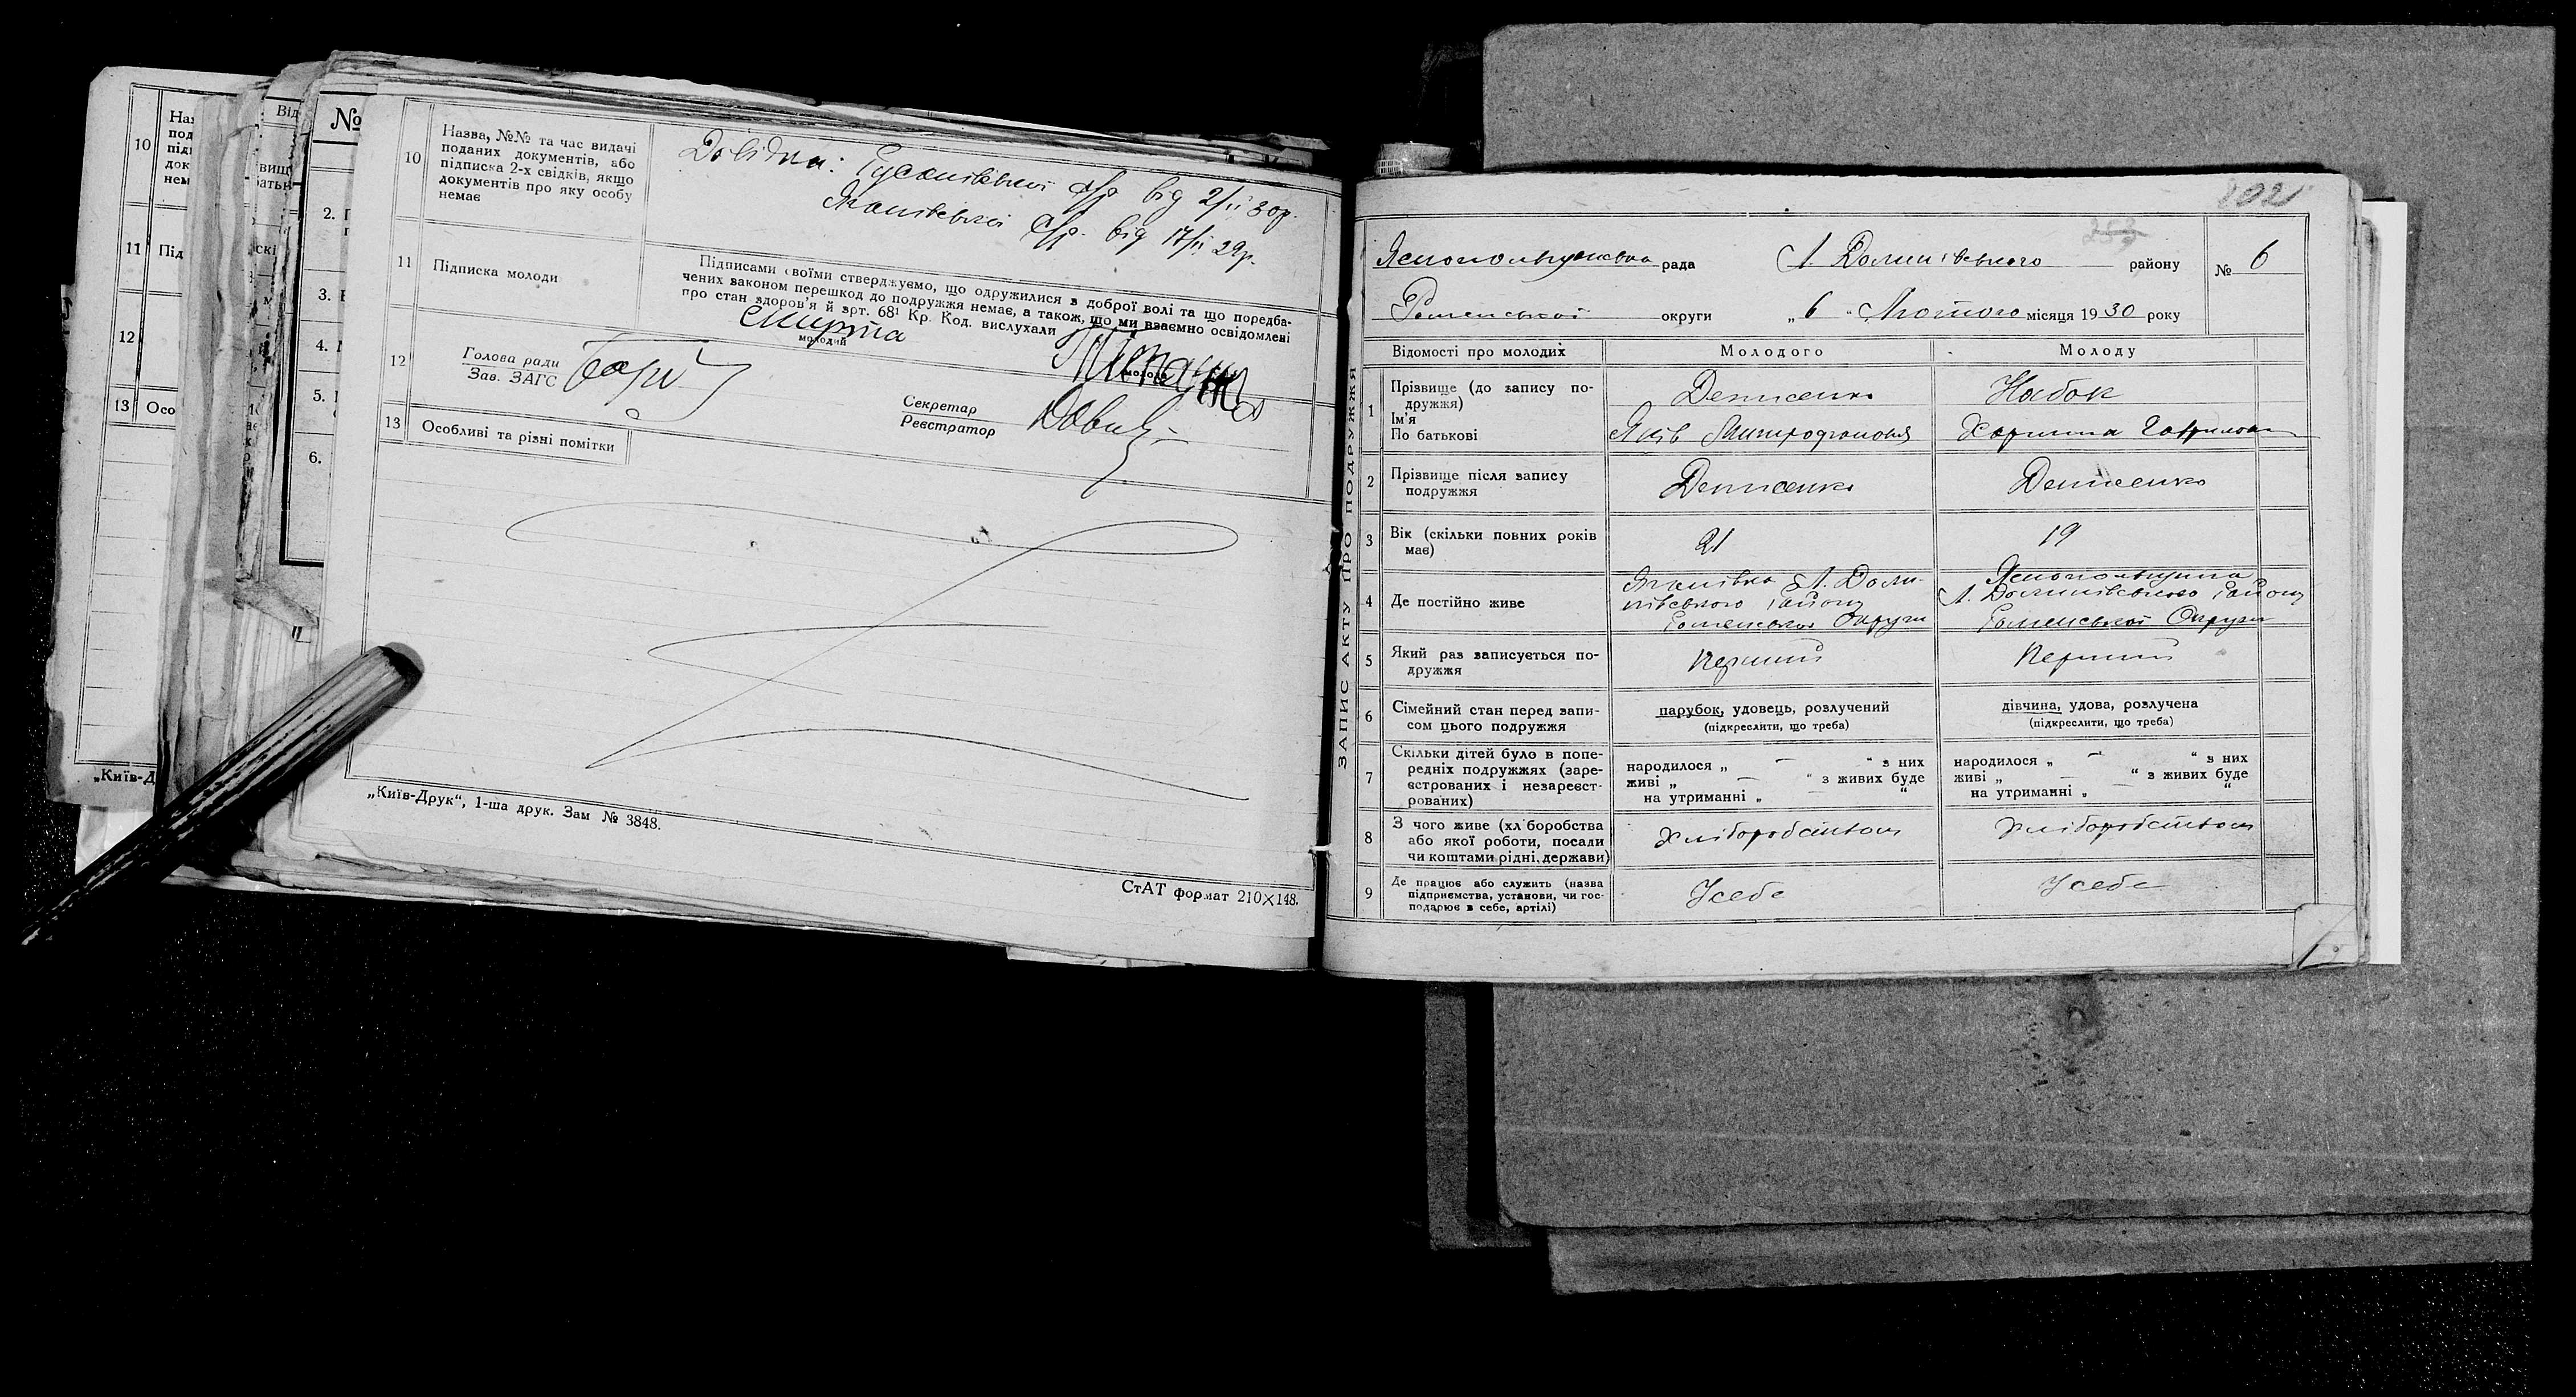 10
Назва, №№ та час видачі
поданих документів, або
підписка 2-х свідків, якщо
документів про яку особу
немає
Довідка: Гусанівської с/р від 2/II 30р.
с/р. від 17/II 29р.
11
Підписка молоди
Підписами своїми стверджуємо, що одружилися з доброї волі та що поредба-
чених законом перешкод до подружжя немає, а також, що ми взаємно освідомлені
про стан здоров'я й арт. 68¹ Кр. Код. вислухали
молодий
молода
12
Голова ради
Зав. ЗАГС
Секретар
Реєстратор
13
Особливі та різні помітки
„Київ-Друк“, 1-ша друк. Зам № 3848.
СтАТ формат 210×148.
№
2.
3.
4.
5.
6.
10
11 Під
12
13 Осо
„Київ-Д
ЗАПИС АКТУ ПРО ПОДРУЖЖЯ
рада Л. Долинівського району
№ 6
Роменської округи „6“ Лютого місяця 1930 року
Відомості про молодих Молодого Молоду
1
Прізвище (до запису по-
дружжя)
Ім'я
По батькові
Денисенко
Яків Митрофанович
Набок
Харитина Гаврилови
2
Прізвище після запису
подружжя
Денисенко
Денисенко
3
Вік (скільки повних років
має)
21
19
4
Де постійно живе
Л. Доли-
нівського району
Роменської Округи
Яснопольщина
Л. Долинівського району
Роменської Округи
5
Який раз записується по-
дружжя
Перший
Перший
6
Сімейний стан перед запи-
сом цього подружжя
парубок, удовець, розлучений
(підкреслити, що треба)
дівчина, удова, розлучена
(підкреслити, що треба)
7
Скільки дітей було в попе-
редніх подружжях (заре-
єстрованих і незареєст-
рованих)
народилося „ — “ з них
живі „ — “ з живих буде
на утриманні „ — “
народилося „ — “ з них
живі „ — “ з живих буде
на утриманні „ — “
8
З чого живе (хліборобства
або якої роботи, посади
чи коштами рідні, держави)
Хліборобством
Хліборобством
9
Де працює або служить (назва
підприємства, установи, чи гос-
подарює в себе, артілі)
У себе
У себе